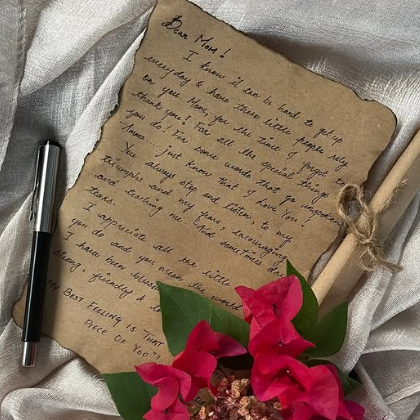 Dear Mom!
I know it can be hard to get up
everyday & have three little people rely
on you Mom, for the time I forgot to
thank you! For all the special things
you do! For some words that go unspoken
I just know that I love You!
You always stop and listen, to my
triumphs and my fears encouraging
and teaching me. And sometimes
tears.
I appreciate all the little
you do and you mean the world
I have been blessed
strong, friendly &
My Best Feeling Is That
Piece Of You"!